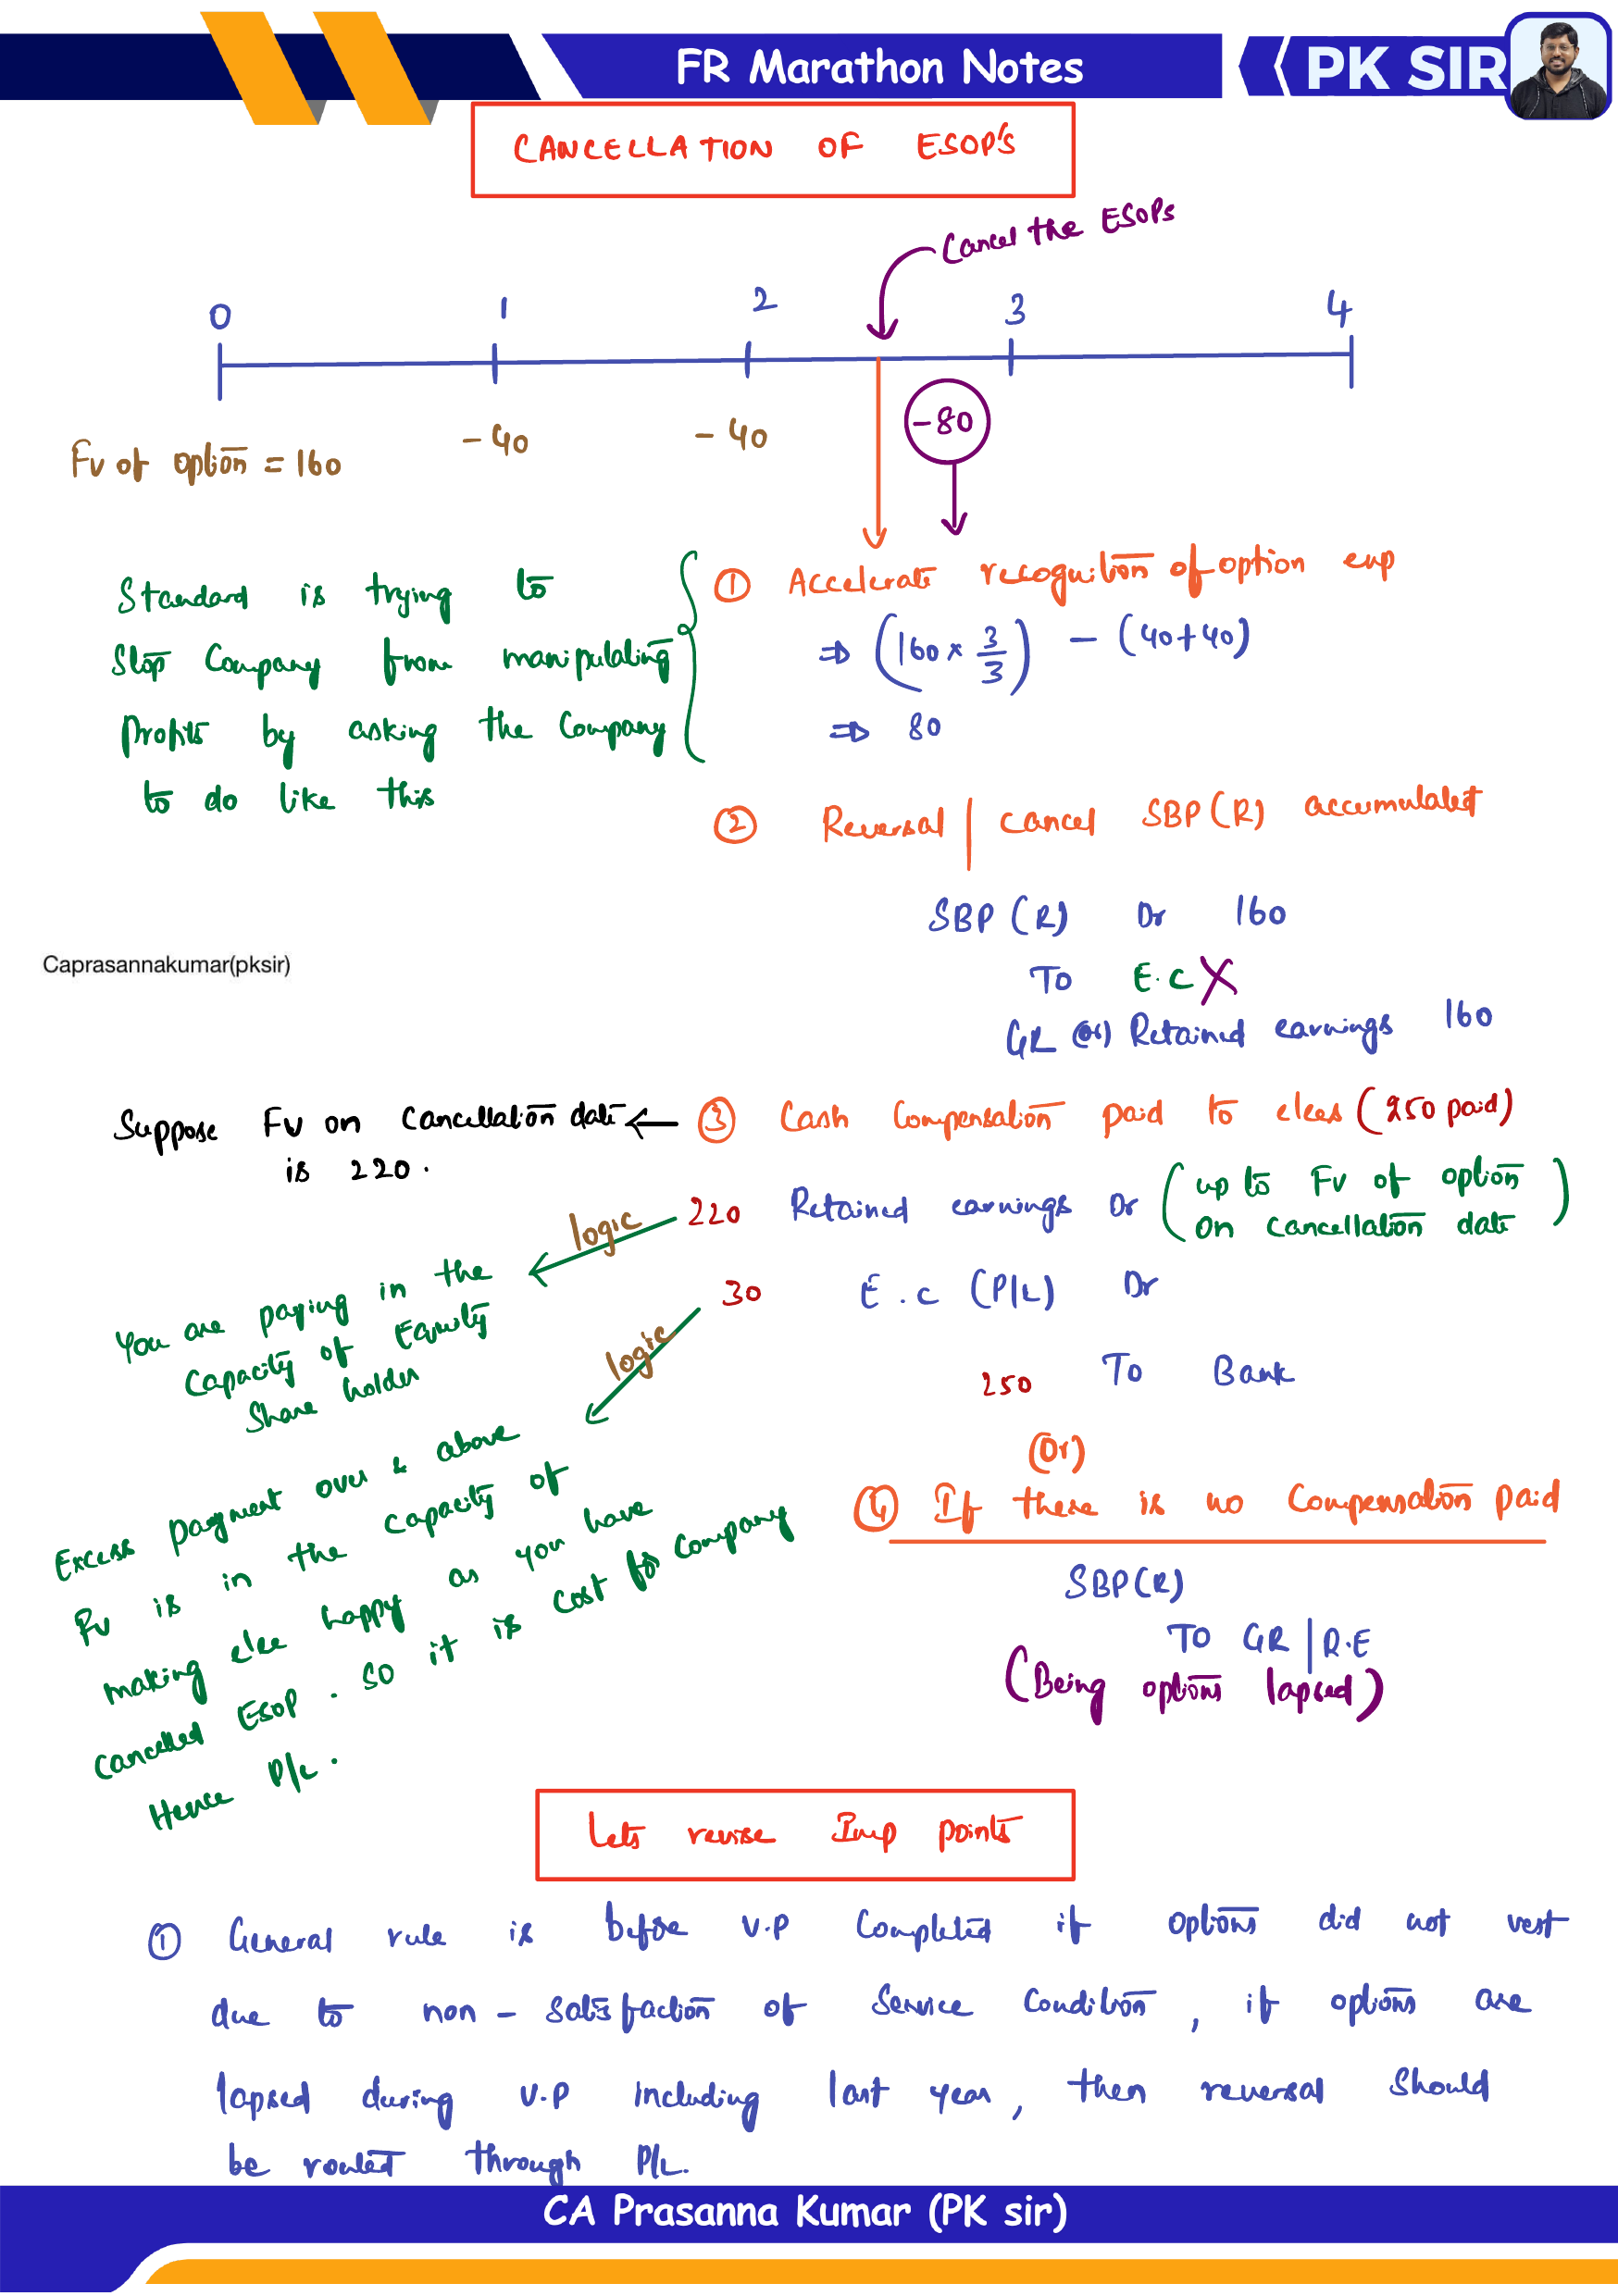 FR Marathon Notes
PK SIR
CANCELLATION OF ESOP'S
Cancel the ESOPs
0 1 2 3 4
Fv of option = 160
- 40
- 40
- 80
Standard is trying to
stop Company from manipulating
profits by asking the Company
to do like this
① Accelerate recognition of option exp
⇒ (160 × 3/3) - (40+40)
⇒ 80
② Reversal | cancel SBP(R) accumulated
SBP (R) Dr 160
To E.C X
GR (or) Retained earnings 160
Caprasannakumar(pksir)
Suppose Fv on Cancellation date ←
is 220.
③ Cash Compensation paid to elees (250 paid)
220 Retained earnings Dr (up to Fv of option
on cancellation date)
30 E.c (P/L) Dr
250 To Bank
logic
You are paying in the
capacity of Equity
Share holder
logic
Excess payment over & above
Fv is in the capacity of
making elee happy as you have
cancelled ESOP. So it is cost for company
Hence P/L.
(Or)
④ If there is no Compensation paid
SBP(R)
To GR | R.E
(Being options lapsed)
Lets revise Imp points
① General rule is before V.P Completed if options did not vest
due to non - satisfaction of Service Condition, if options are
lapsed during V.P including last year, then reversal should
be routed through P/L.
CA Prasanna Kumar (PK sir)